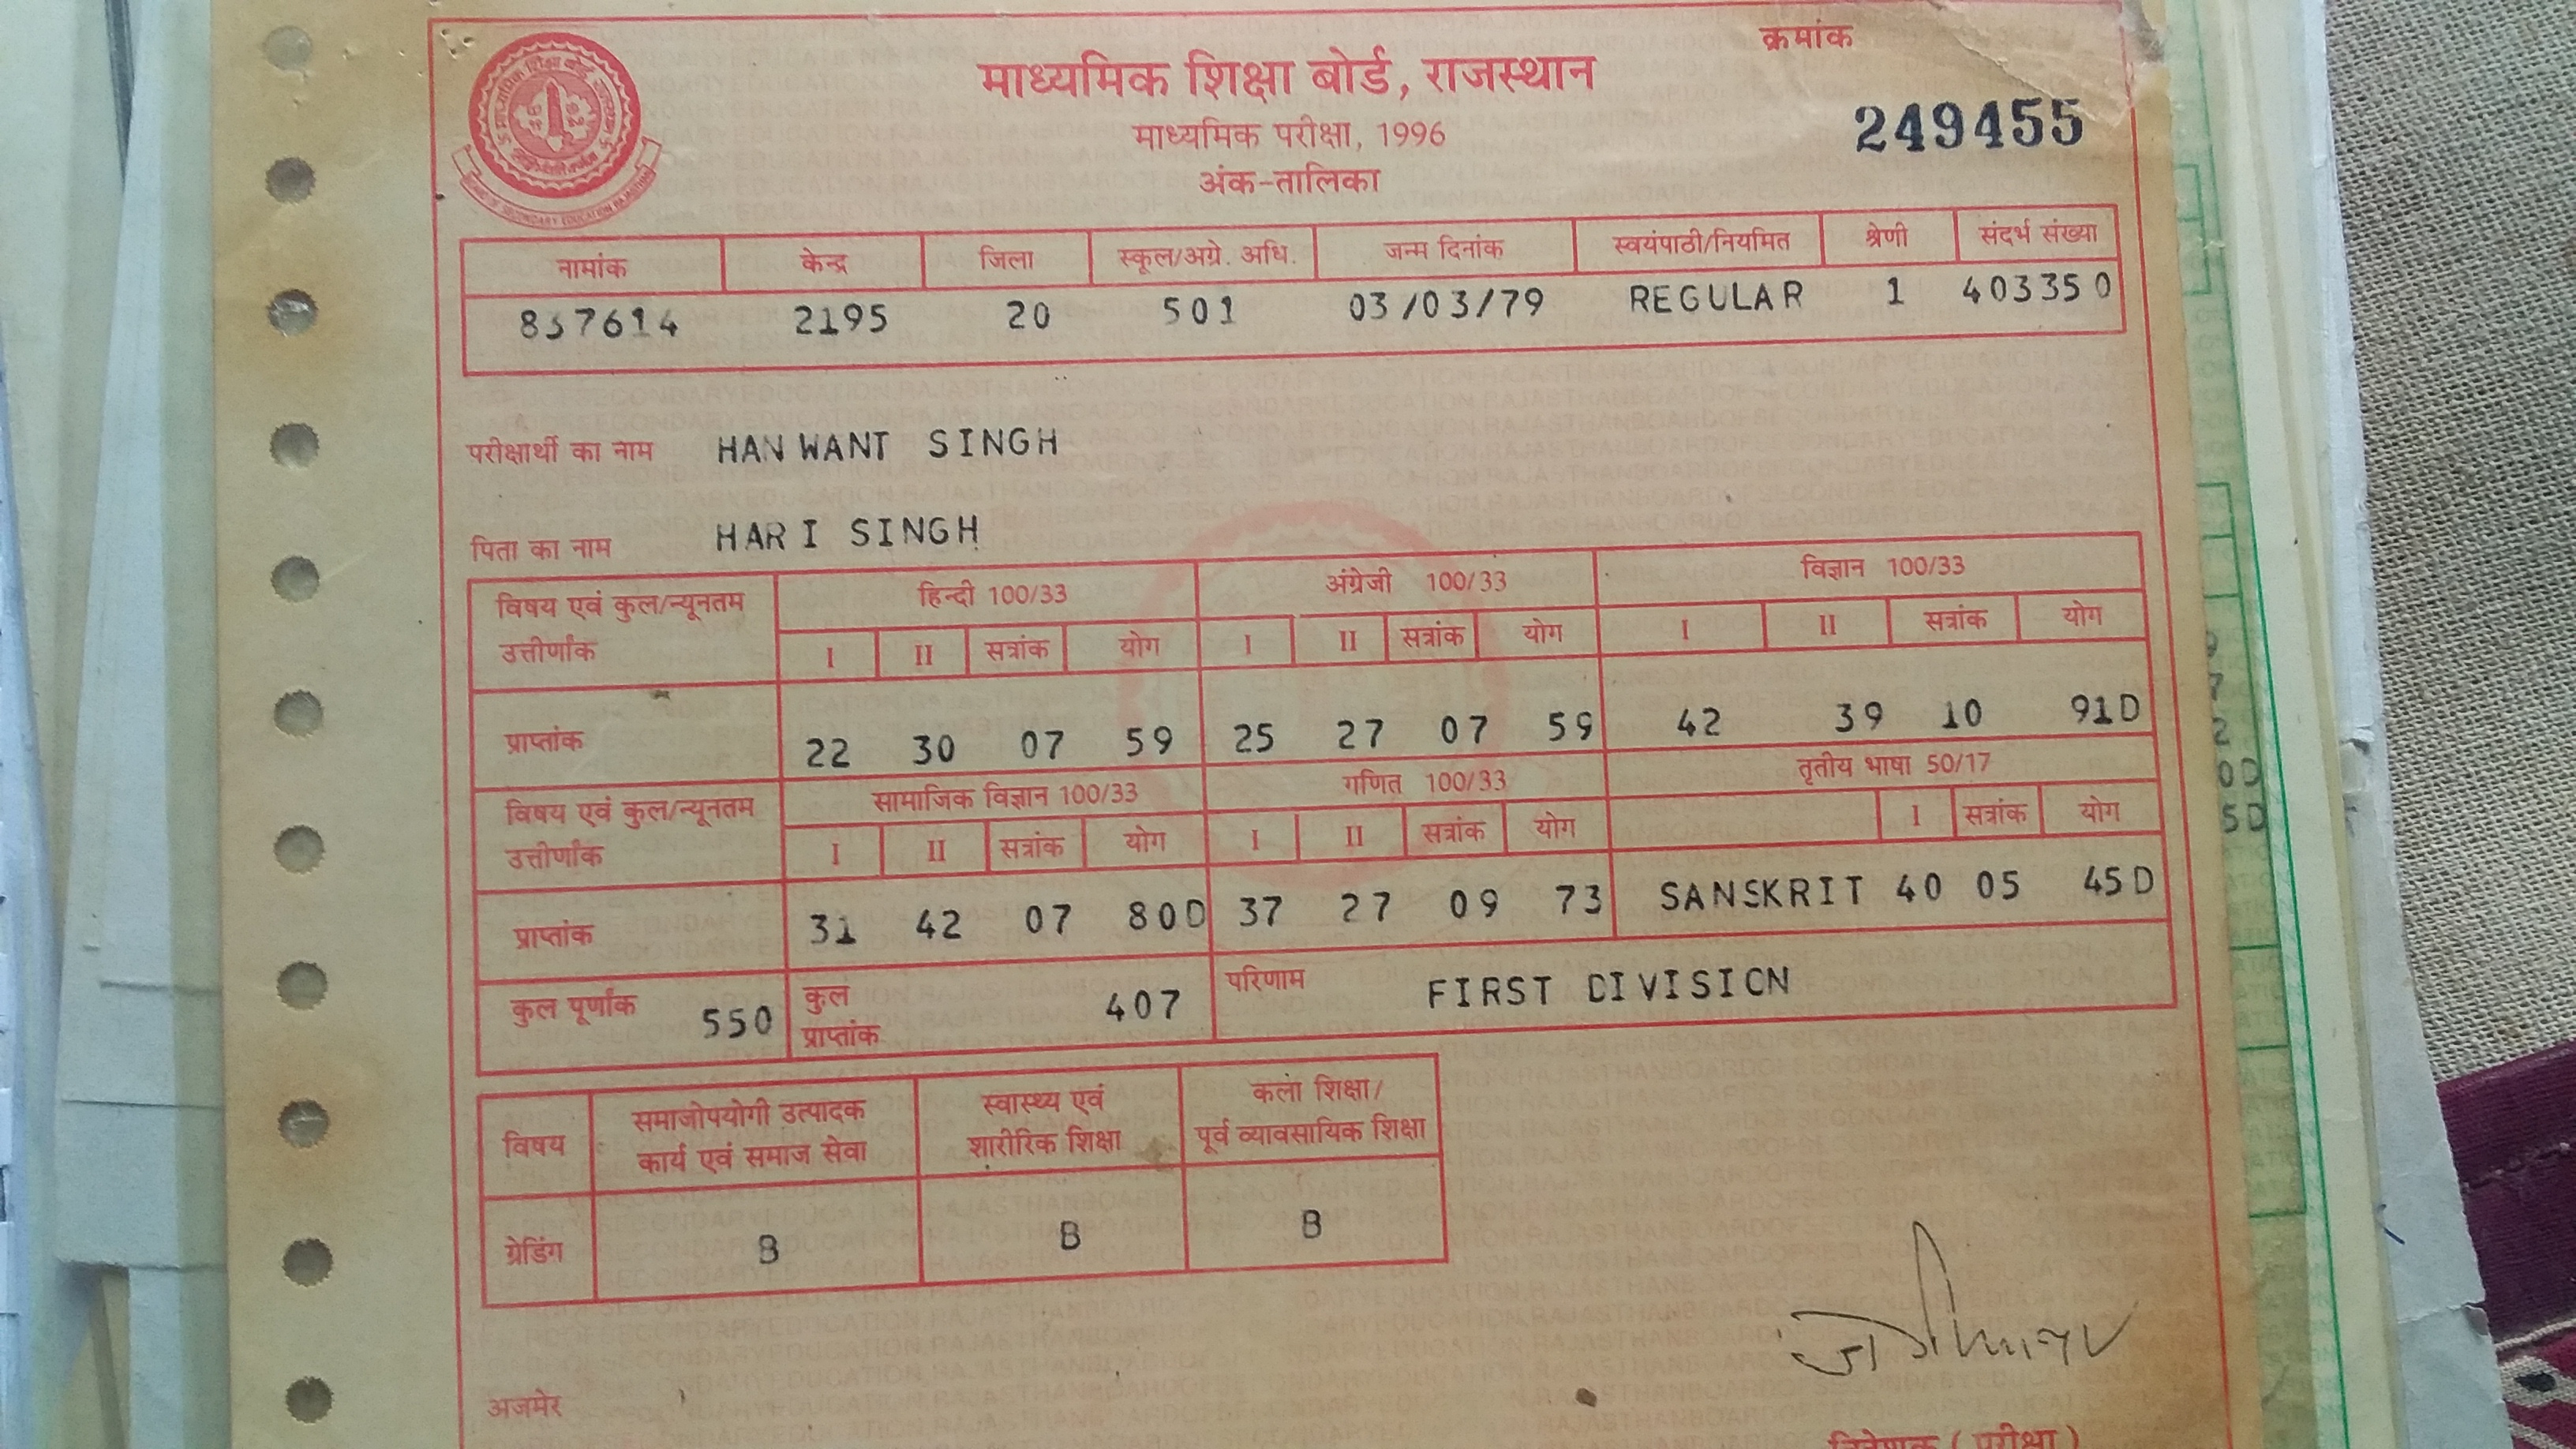 क्रमांक
माध्यमिक शिक्षा बोर्ड, राजस्थान
249455
माध्यमिक परीक्षा, 1996
अंक-तालिका
नामांक केन्द्र जिला स्कूल/अग्रे. अधि. जन्म दिनांक स्वयंपाठी/नियमित श्रेणी संदर्भ संख्या
837614 2195 20 501 03/03/79 REGULAR 1 403350
परीक्षार्थी का नाम HANWANT SINGH
पिता का नाम HARI SINGH
विषय एवं कुल/न्यूनतम हिन्दी 100/33 अंग्रेजी 100/33 विज्ञान 100/33
उत्तीर्णांक I II सत्रांक योग I II सत्रांक योग I II सत्रांक योग
प्राप्तांक 22 30 07 59 25 27 07 59 42 39 10 91D
विषय एवं कुल/न्यूनतम सामाजिक विज्ञान 100/33 गणित 100/33 तृतीय भाषा 50/17
उत्तीर्णांक I II सत्रांक योग I II सत्रांक योग I सत्रांक योग
प्राप्तांक 31 42 07 80D 37 27 09 73 SANSKRIT 40 05 45D
कुल पूर्णांक 550 कुल प्राप्तांक 407 परिणाम FIRST DIVISION
विषय समाजोपयोगी उत्पादक स्वास्थ्य एवं कला शिक्षा/
कार्य एवं समाज सेवा शारीरिक शिक्षा पूर्व व्यावसायिक शिक्षा
ग्रेडिंग B B B
अजमेर
निदेशक (परीक्षा)